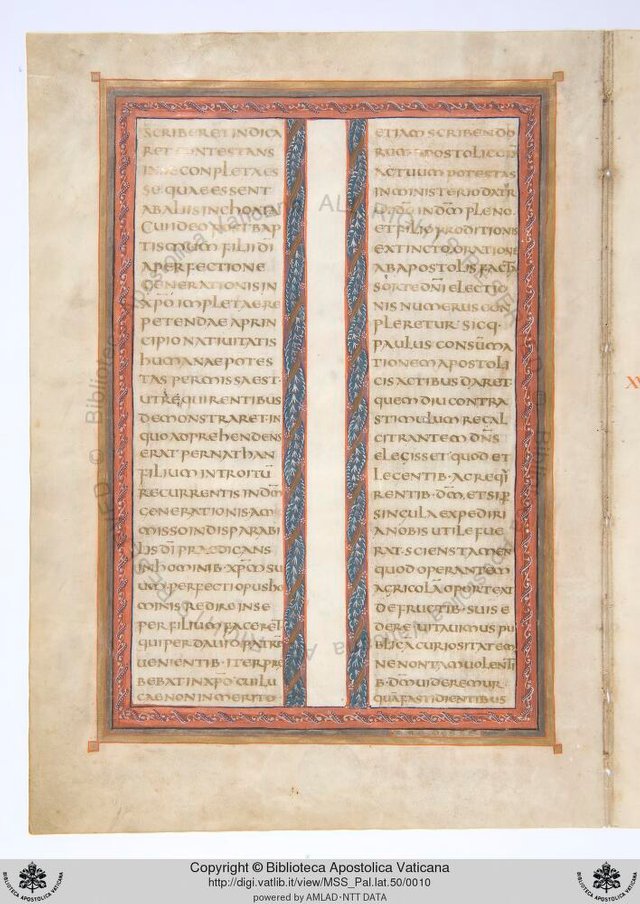 SCRIBERET INDICA
RET CONTESTANS
INSE CONPLETAES
SE QUAE ESSENT
ABALIIS INCHOATA
CUI IDEO PATET BAP
TISMUM FILII DI
A PERFECTIONE
GENERATIONIS IN
XPO IMPLETAE RE
PETENDAE APRIN
CIPIO NATIVITATIS
HUMANAE POTES
TAS PERMISSA EST
UT REQUIRENTIBUS
DEMONSTRARET IN
QUO APPREHENDENS
ERAT PER NATHAN
FILIUM INTROITU
RECURRENTIS IN DM
GENERATIONIS AM
MISSO INDISPARABI
LIS DI PRAEDICANS
IN HOMINIB · XPM SU
UM · PERFECTI OPUS HO
MINIS REDIRE INSE
PER FILIUM FACERET
QUI PER DAVID PATRE
UENIENTIB · ITER PRE
BEBAT IN XPO CUI LU
CAE NON INMERITO
ETIAM SCRIBENDO
RUM APOSTOLICOR
ACTUUM POTESTAS
IN MINISTERIO DATR
IN DM PLENO ·
ET FILIO PRODITIONIS
EXTINCTO · ORATIONE
AB APOSTOLIS FACTA
SORTE DNI ELECTIO
NIS NUMERUS CON
PLERETUR · SICQ ·
PAULUS CONSUMA
TIONEM APOSTOLI
CIS ACTIBUS DARET ·
QUEM DIU CONTRA
STIMULUM RECAL
CITRANTEM DNS
ELEGISSET · QUOD ET
LEGENTIB · AC REQI
RENTIB · DM, ET SI P
SINGULA EXPEDIRI
A NOBIS UTILE FUE
RAT · SCIENS TAMEN
QUOD OPERANTEM
AGRICOLA OPORTEAT
DE FRUCTIB · SUIS E
DERE UITAUIMUS PU
BLICA CURIOSITATEM
NE NON TAM UOLENTI
B · DM UIDEREMUR ·
QUA FASTIDIENTIBUS
XV
Copyright © Biblioteca Apostolica Vaticana
http://digi.vatlib.it/view/MSS_Pal.lat.50/0010
powered by AMLAD · NTT DATA
BIBLIOTECA APOSTOLICA VATICANA
BIBLIOTECA APOSTOLICA VATICANA